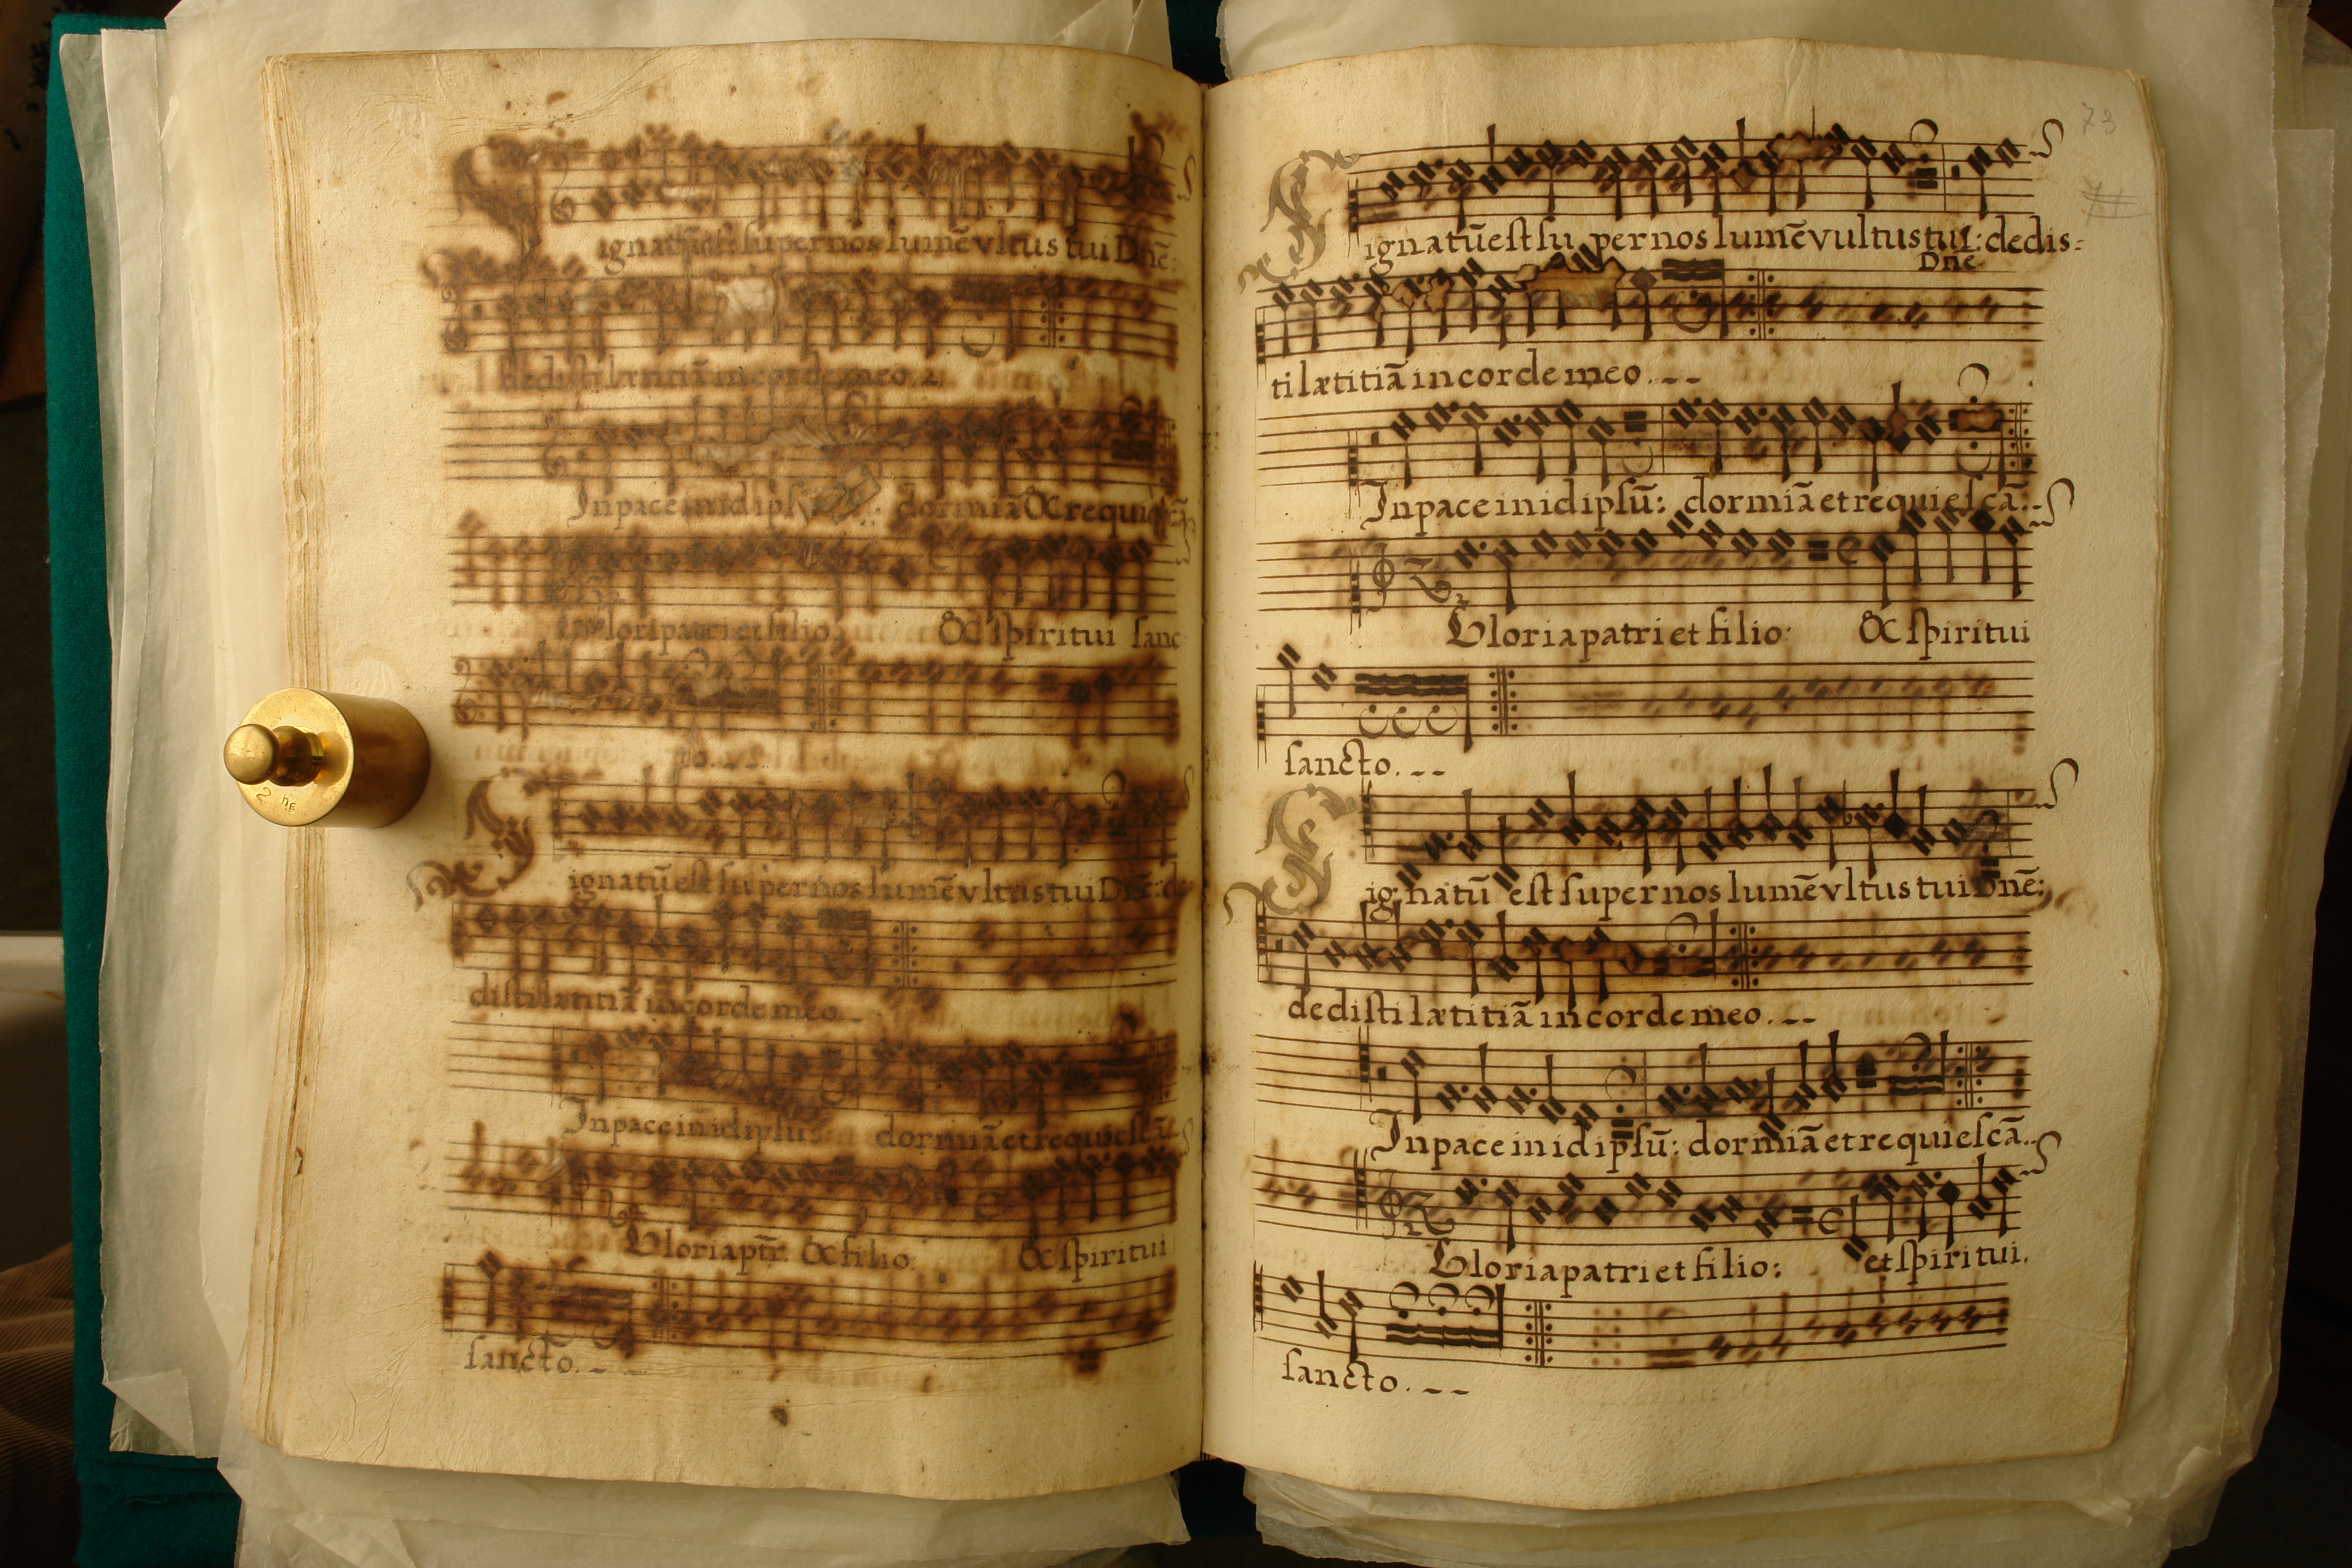 ignatūest supernos lumē vltus tui Dnē:
dedisti lætitiā in corde meo.
In pace in idips : dormiā & requiescā
Gloria patri et filio & spiritui sanc
to.
ignatū est super nos lumē vltus tui Dnē: de
disti lætitiā in corde meo.
In pace in idipsū: dormiā et requiescā.
Gloria ptr̄. & filio. & spiritui
sancto.
73
ignatū est su per nos lumē vultus tui: dedis=
Dne
ti lætitiā in corde meo.
In pace in idipsū: dormiā et requiescā.
Gloria patri et filio: & spiritui
sancto.
ignatū est super nos lumē vltus tui Dnē:
dedisti lætitiā in corde meo.
In pace in idipsū: dormiā et requiescā.
Gloria patri et filio: et spiritui.
sancto.